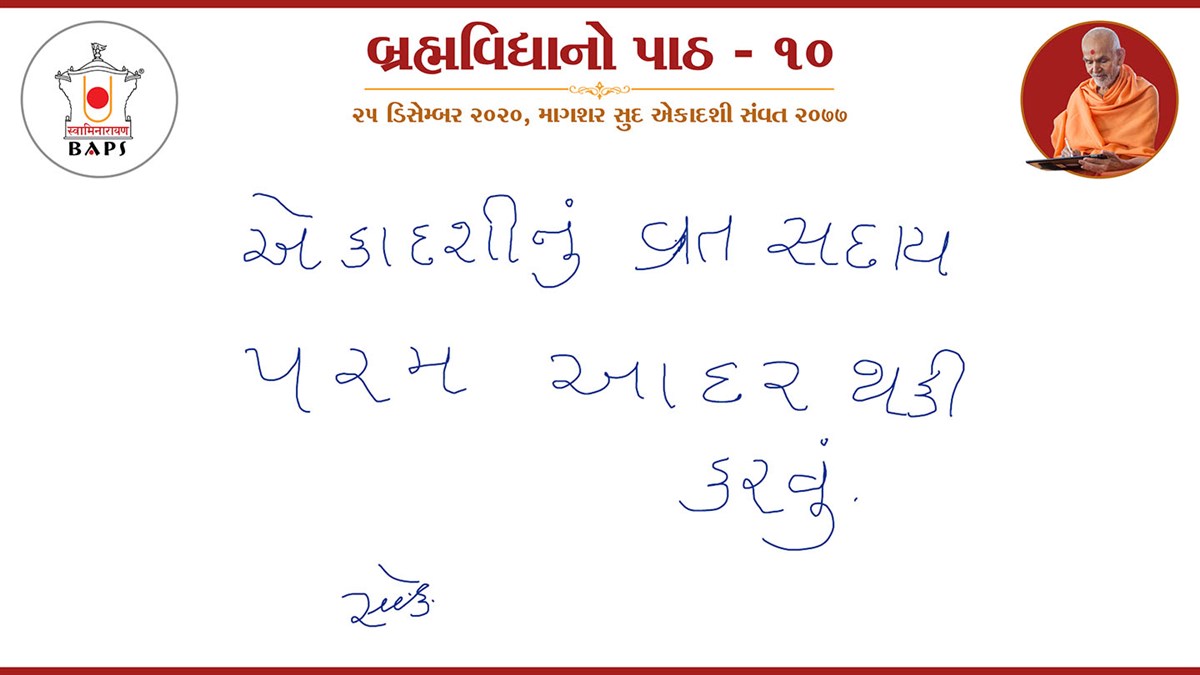 બ્રહ્મવિદ્યાનો પાઠ - ૧૦
૨૫ ડિસેમ્બર ૨૦૨૦, માગશર સુદ એકાદશી સંવત ૨૦૭૭
સ્વામિનારાયણ
BAPS
®
એકાદશીનું વ્રત સદાય
પરમ આદર થકી
કરવું.